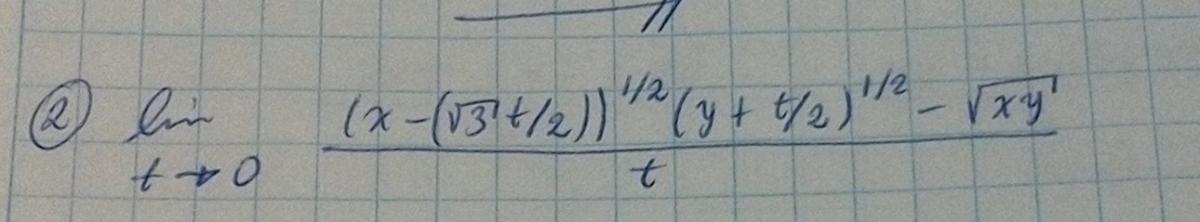 ② lim t→0 ((x-(√3 t/2))^{1/2} (y + t/2)^{1/2} - √xy) / t